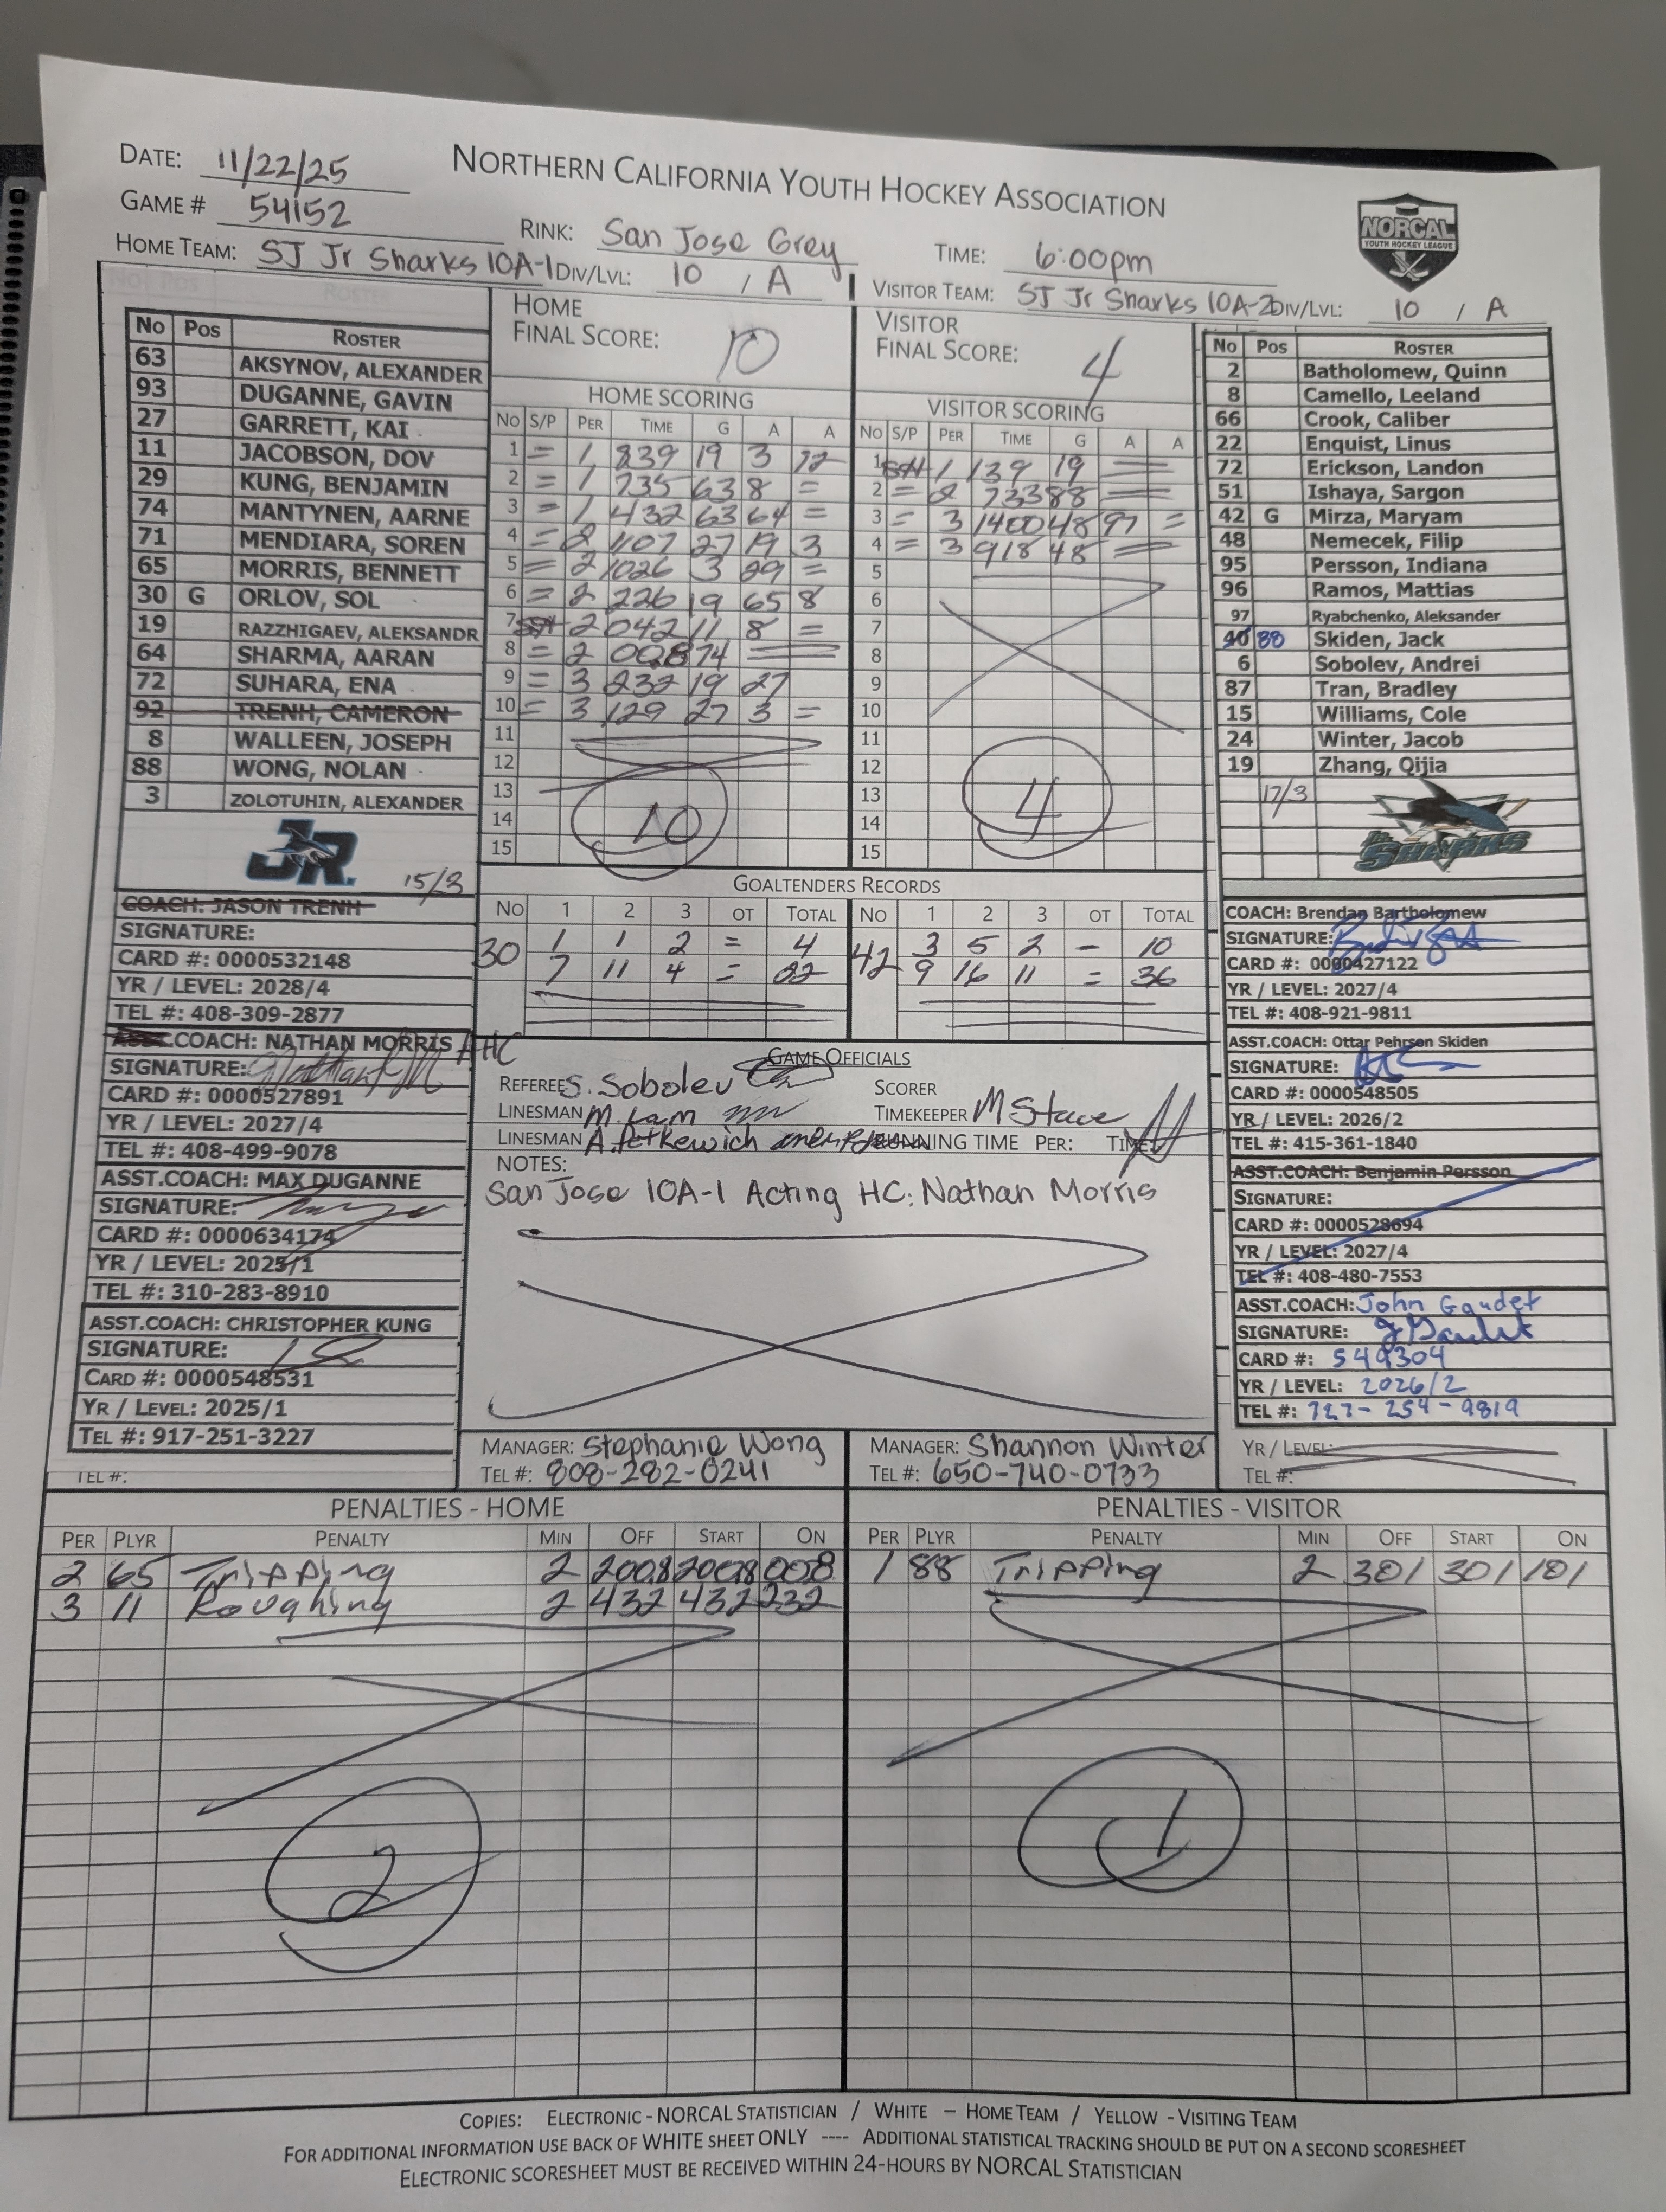 DATE: 11/22/25
NORTHERN CALIFORNIA YOUTH HOCKEY ASSOCIATION
GAME # 54152
RINK: San Jose Grey
TIME: 6:00pm
NORCAL
YOUTH HOCKEY LEAGUE
HOME TEAM: SJ Jr Sharks 10A-1 DIV/LVL: 10 / A
VISITOR TEAM: SJ Jr Sharks 10A-2 DIV/LVL: 10 / A
No Pos ROSTER
63 AKSYNOV, ALEXANDER
93 DUGANNE, GAVIN
27 GARRETT, KAI
11 JACOBSON, DOV
29 KUNG, BENJAMIN
74 MANTYNEN, AARNE
71 MENDIARA, SOREN
65 MORRIS, BENNETT
30 G ORLOV, SOL
19 RAZZHIGAEV, ALEKSANDR
64 SHARMA, AARAN
72 SUHARA, ENA
92 TRENH, CAMERON
8 WALLEEN, JOSEPH
88 WONG, NOLAN
3 ZOLOTUHIN, ALEXANDER
JR.
15/3
HOME
FINAL SCORE: 10
HOME SCORING
NO S/P PER TIME G A A
1 = 1 839 19 3 72
2 = 1 735 63 8 =
3 = 1 432 63 64 =
4 = 2 1107 27 19 3
5 = 2 1026 3 29 =
6 = 2 226 19 65 8
7 2 042 11 8 =
8 = 2 0028 74
9 = 3 232 19 27
10 = 3 129 27 3 =
11
12
13
14
15
10
VISITOR
FINAL SCORE: 4
VISITOR SCORING
NO S/P PER TIME G A A
1 SH 1 139 19
2 = 2 733 88
3 = 3 1400 48 97 =
4 = 3 918 48
5
6
7
8
9
10
11
12
13
14
15
4
No Pos ROSTER
2 Batholomew, Quinn
8 Camello, Leeland
66 Crook, Caliber
22 Enquist, Linus
72 Erickson, Landon
51 Ishaya, Sargon
42 G Mirza, Maryam
48 Nemecek, Filip
95 Persson, Indiana
96 Ramos, Mattias
97 Ryabchenko, Aleksander
40 88 Skiden, Jack
6 Sobolev, Andrei
87 Tran, Bradley
15 Williams, Cole
24 Winter, Jacob
19 Zhang, Qijia
17/3
JR. SHARKS
GOALTENDERS RECORDS
NO 1 2 3 OT TOTAL NO 1 2 3 OT TOTAL
30 1 1 2 = 4 42 3 5 2 - 10
7 11 4 = 22 9 16 11 = 36
COACH: JASON TRENH
SIGNATURE:
CARD #: 0000532148
YR / LEVEL: 2028/4
TEL #: 408-309-2877
ASST.COACH: NATHAN MORRIS AHC
SIGNATURE:
CARD #: 0000527891
YR / LEVEL: 2027/4
TEL #: 408-499-9078
ASST.COACH: MAX DUGANNE
SIGNATURE:
CARD #: 0000634174
YR / LEVEL: 2025/1
TEL #: 310-283-8910
ASST.COACH: CHRISTOPHER KUNG
SIGNATURE:
CARD #: 0000548531
YR / LEVEL: 2025/1
TEL #: 917-251-3227
TEL #:
GAME OFFICIALS
REFEREE S. Sobolev
SCORER
LINESMAN M. Lam
TIMEKEEPER M Stave
LINESMAN A. Petkewich RUNNING TIME PER: TIME
NOTES:
San Jose 10A-1 Acting HC: Nathan Morris
MANAGER: Stephanie Wong
TEL #: 808-282-0241
MANAGER: Shannon Winter
TEL #: 650-740-0733
COACH: Brendan Bartholomew
SIGNATURE:
CARD #: 0000427122
YR / LEVEL: 2027/4
TEL #: 408-921-9811
ASST.COACH: Ottar Pehrson Skiden
SIGNATURE:
CARD #: 0000548505
YR / LEVEL: 2026/2
TEL #: 415-361-1840
ASST.COACH: Benjamin Persson
SIGNATURE:
CARD #: 0000528694
YR / LEVEL: 2027/4
TEL #: 408-480-7553
ASST.COACH: John Gaudet
SIGNATURE: J Gaudet
CARD #: 549304
YR / LEVEL: 2026/2
TEL #: 727-254-9819
YR / LEVEL:
TEL #:
PENALTIES - HOME
PER PLYR PENALTY MIN OFF START ON
2 65 Tripping 2 2008 2008 008
3 11 Roughing 2 432 432 232
2
PENALTIES - VISITOR
PER PLYR PENALTY MIN OFF START ON
1 88 Tripping 2 301 301 101
1
COPIES: ELECTRONIC - NORCAL STATISTICIAN / WHITE – HOME TEAM / YELLOW - VISITING TEAM
FOR ADDITIONAL INFORMATION USE BACK OF WHITE SHEET ONLY ---- ADDITIONAL STATISTICAL TRACKING SHOULD BE PUT ON A SECOND SCORESHEET
ELECTRONIC SCORESHEET MUST BE RECEIVED WITHIN 24-HOURS BY NORCAL STATISTICIAN